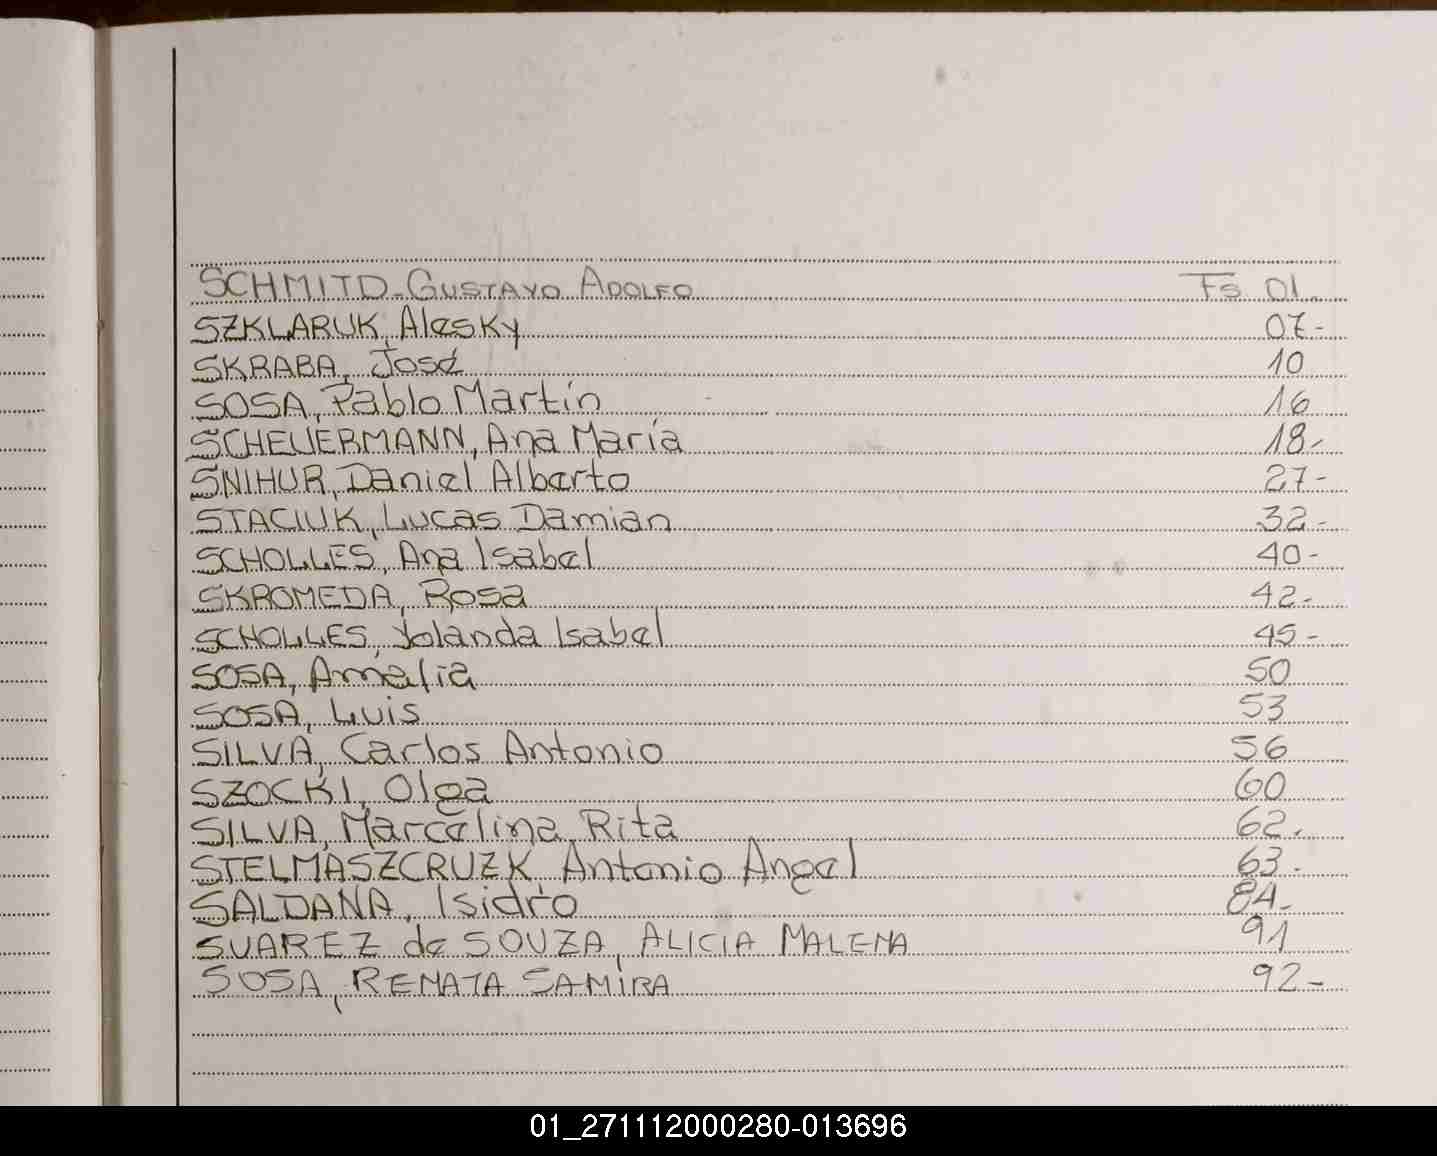 SCHMITD-GUSTAVO ADOLFO Fs 01.
SZKLARUK, Alesky 07-
SKRABA, José 10
SOSA, Pablo Martín 16
SCHEUERMANN, Ana María 18-
SNIHUR, Daniel Alberto 27-
STACIUK, Lucas Damian 32-
SCHOLLES, Ana Isabel 40-
SKROMEDA, Rosa 42-
SCHOLLES, Yolanda Isabel 45-
SOSA, Amalia 50
SOSA, Luis 53
SILVA, Carlos Antonio 56
SZOCKI, Olga 60
SILVA, Marcelina Rita 62.
STELMASZCRUZK Antonio Angel 63-
SALDANA, Isidro 84-
SUAREZ de SOUZA, ALICIA MALENA 91
SOSA, RENATA SAMIRA 92-
01_271112000280-013696